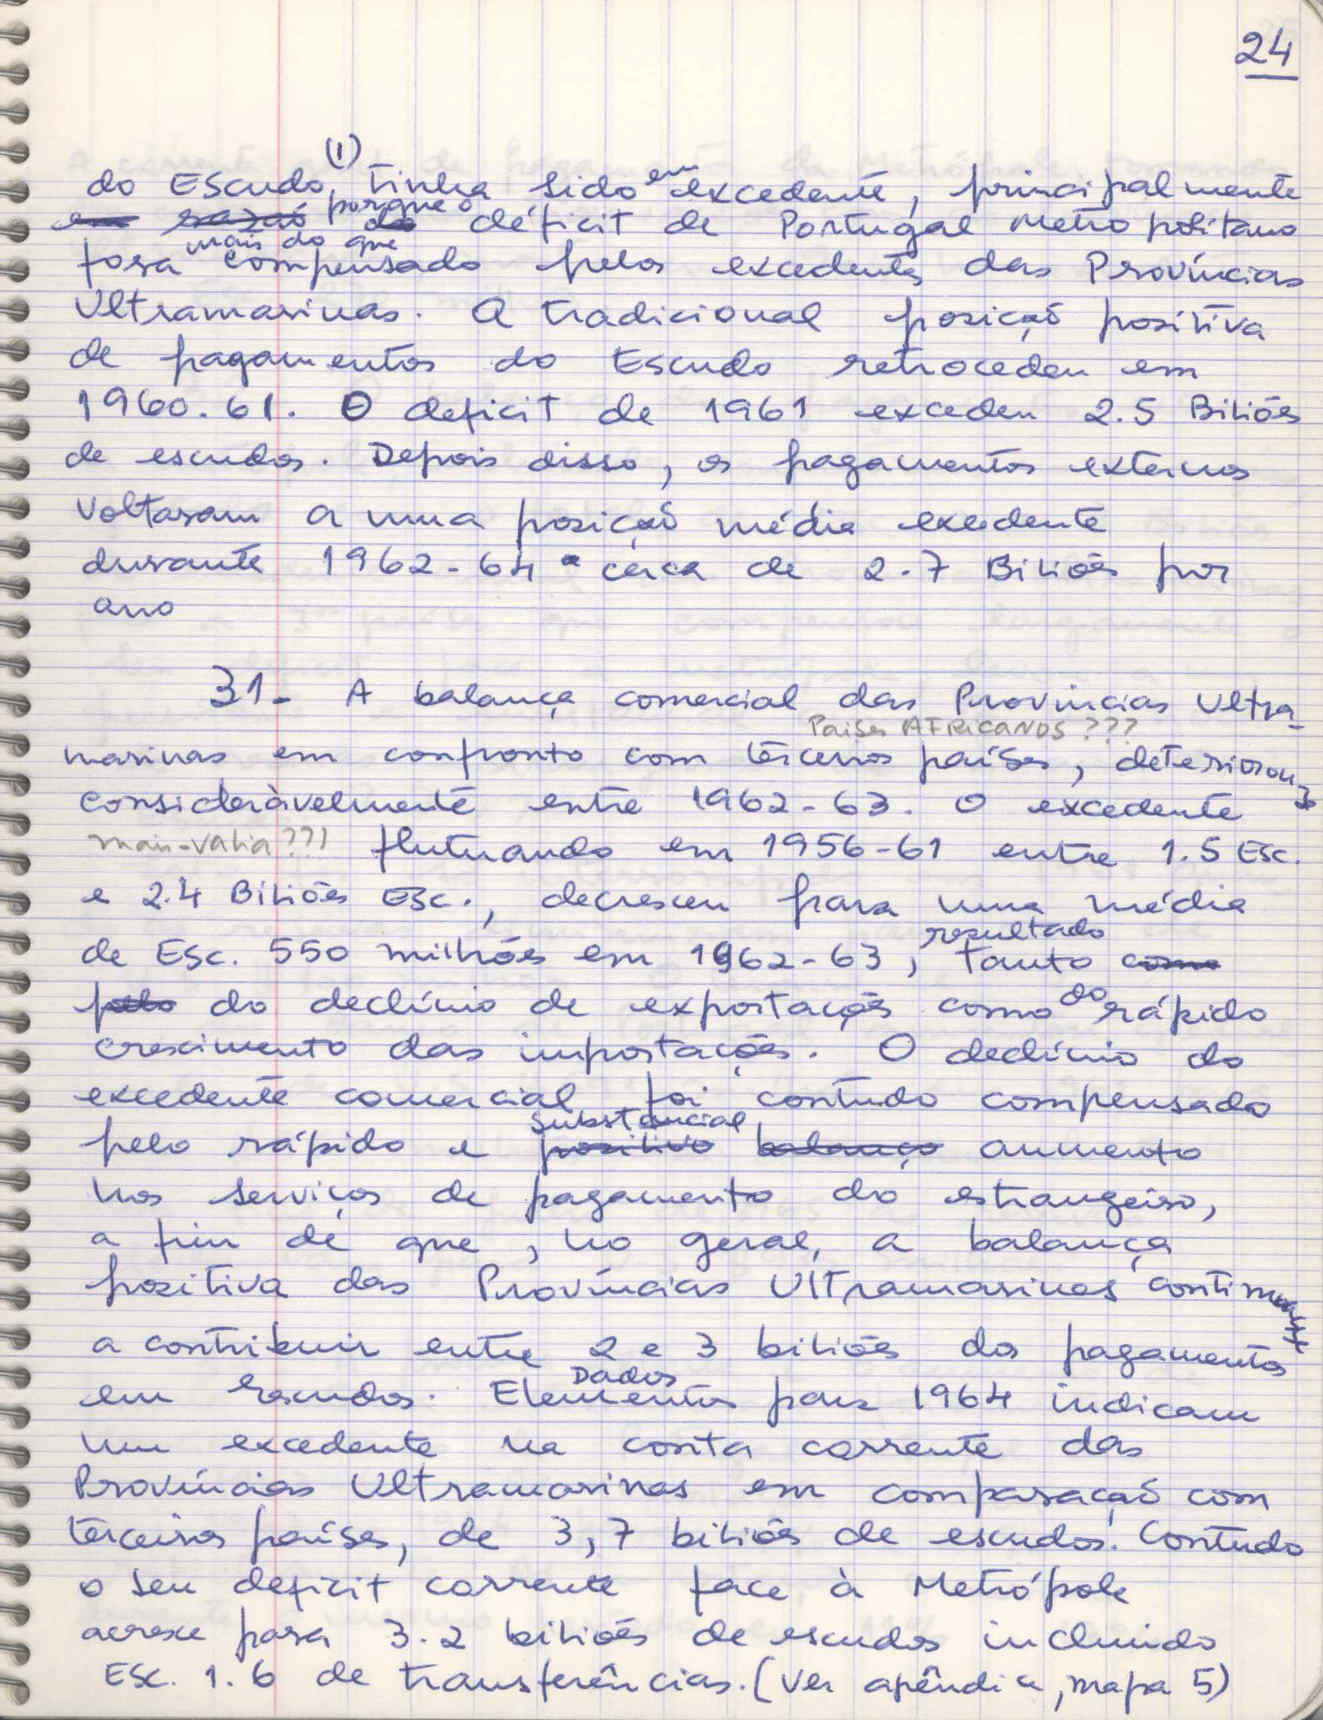 24
(1)
do Escudo, tinha sido em excedente, principalmente
em razaõ porque o do déficit de Portugal Metropolitano
fora mais do que compensado pelos excedentes das Províncias
Ultramarinas. A tradicional posiçaõ positiva
de pagamentos do Escudo retrocedeu em
1960.61. O deficit de 1961 excedeu 2.5 Biliões
de escudos. Depois disso, os pagamentos externos
voltaram a uma posiçaõ média excedente
durante 1962-64 a cerca de 2.7 Biliões por
ano
31- A balança comercial das Províncias Ultra-
Paises AFRICANOS ???
marinas em confronto com terceiros países, deteriorou
consideràvelmente entre 1962-63. O excedente
mais-valia??! flutuando em 1956-61 entre 1.5 Esc.
e 2.4 Biliões Esc., decresceu para uma média
de Esc. 550 milhões em 1962-63, resultado tanto como
pelo do declínio de exportações como do rápido
crescimento das importações. O declínio do
excedente comercial foi contudo compensado
pelo rápido e positivo substancial balanço aumento
nos serviços de pagamento do estrangeiro,
a fim de que, no geral, a balança
positiva das Províncias Ultramarinas
a contribuir entre 2 e 3 biliões dos pagamentos
em escudos. Elementos Dados para 1964 indicam
um excedente na conta corrente das
Províncias Ultramarinas em comparaçaõ com
terceiros países, de 3,7 biliões de escudos. Contudo
o seu deficit corrente face à Metrópole
acresce para 3.2 biliões de escudos incluindo
Esc. 1.6 de transferências. (Ver apêndice, mapa 5)